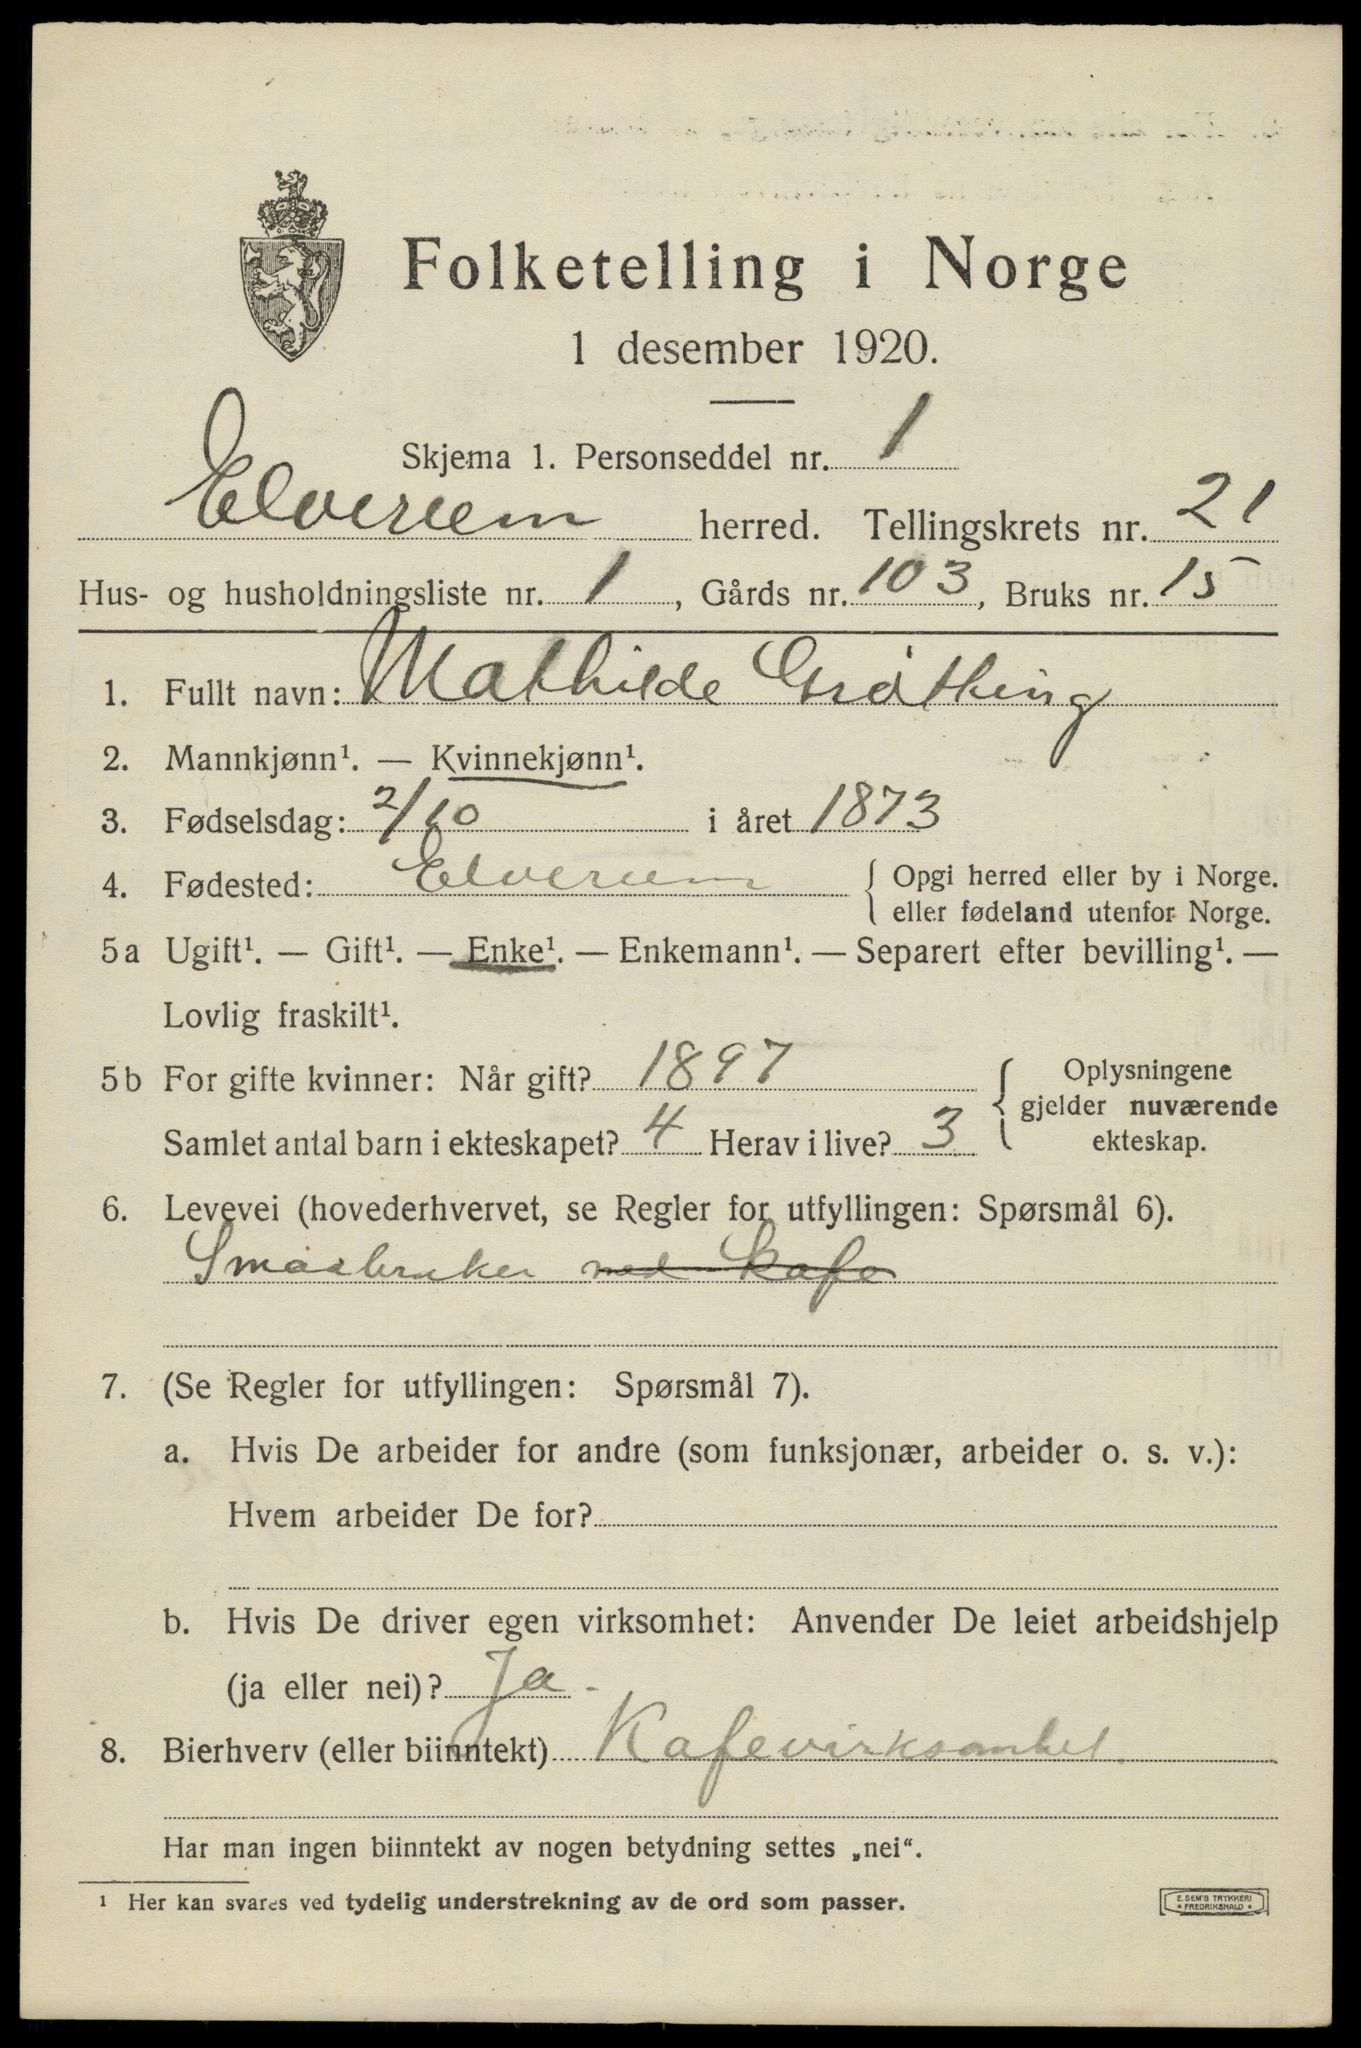 Folketelling i Norge
1 desember 1920.
Skjema 1. Personseddel nr. 1
Elverum herred. Tellingskrets nr. 21
Hus- og husholdningsliste nr. 1, Gårds nr. 103, Bruks nr. 15
1. Fullt navn: Mathilde Grøtting
2. Mannkjønn¹. — Kvinnekjønn¹.
3. Fødselsdag: 2/10 i året 1873
4. Fødested: Elverum { Opgi herred eller by i Norge.
eller fødeland utenfor Norge.
5a Ugift¹. — Gift¹. — Enke¹. — Enkemann¹. — Separert efter bevilling¹. —
Lovlig fraskilt¹.
5b For gifte kvinner: Når gift? 1897
Samlet antal barn i ekteskapet? 4 Herav i live? 3
Oplysningene
gjelder nuværende
ekteskap.
6. Levevei (hovederhvervet, se Regler for utfyllingen: Spørsmål 6).
Smaabruker med Kafe
7. (Se Regler for utfyllingen: Spørsmål 7).
a. Hvis De arbeider for andre (som funksjonær, arbeider o. s. v.):
Hvem arbeider De for?
b. Hvis De driver egen virksomhet: Anvender De leiet arbeidshjelp
(ja eller nei)? Ja.
8. Bierhverv (eller biinntekt) Kafevirksomhet.
Har man ingen biinntekt av nogen betydning settes „nei“.
¹ Her kan svares ved tydelig understrekning av de ord som passer.
E. SEM'S TRYKKERI
* FREDRIKSHALD *